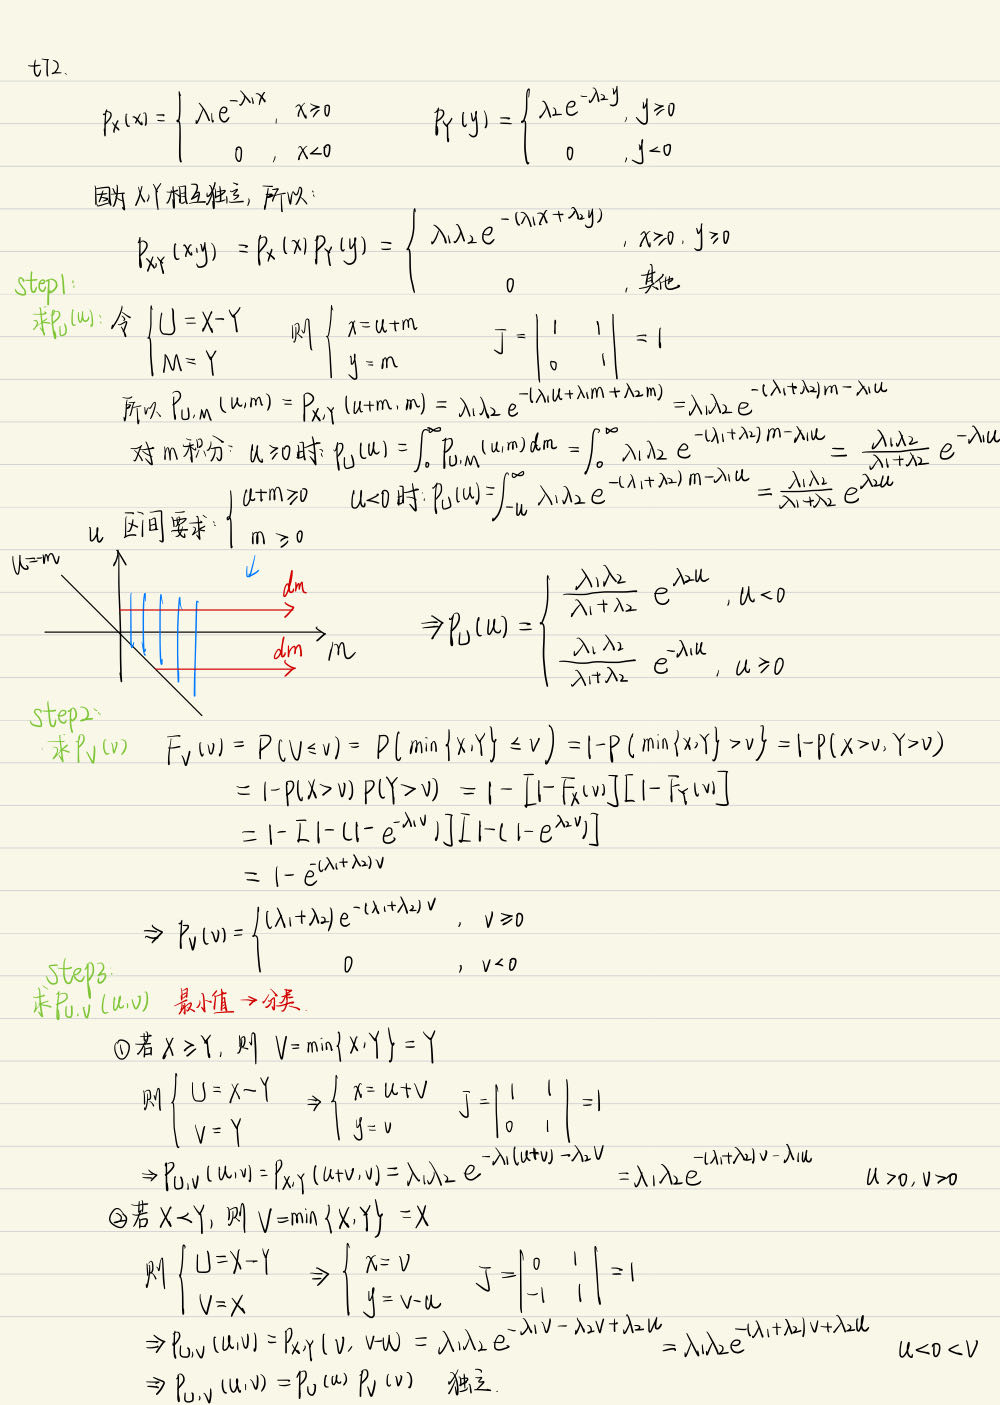 t72.
P_X(x) = { λ₁e^{-λ₁x}, x≥0 ; 0, x<0    P_Y(y) = { λ₂e^{-λ₂y}, y≥0 ; 0, y<0
因为 X,Y 相互独立, 所以:
P_{XY}(x,y) = P_X(x) P_Y(y) = { λ₁λ₂e^{-(λ₁x+λ₂y)}, x≥0, y≥0 ; 0, 其他
step1:
求P_U(u): 令 { U=X-Y ; M=Y    则 { x=u+m ; y=m    J = | 1 1 ; 0 1 | = 1
所以 P_{U,M}(u,m) = P_{X,Y}(u+m, m) = λ₁λ₂ e^{-(λ₁u+λ₁m+λ₂m)} = λ₁λ₂e^{-(λ₁+λ₂)m-λ₁u}
对 m 积分: u≥0时: P_U(u) = ∫₀^∞ P_{U,M}(u,m)dm = ∫₀^∞ λ₁λ₂ e^{-(λ₁+λ₂)m-λ₁u} = λ₁λ₂/(λ₁+λ₂) e^{-λ₁u}
区间要求: { u+m≥0 ; m≥0    u<0时: P_U(u) = ∫_{-u}^∞ λ₁λ₂ e^{-(λ₁+λ₂)m-λ₁u} = λ₁λ₂/(λ₁+λ₂) e^{λ₂u}
u
u=-m
dm
dm
m
⇒ P_U(u) = { λ₁λ₂/(λ₁+λ₂) e^{λ₂u}, u<0 ; λ₁λ₂/(λ₁+λ₂) e^{-λ₁u}, u≥0
step2:
求P_V(v)    F_V(v) = P(V≤v) = P{min{X,Y}≤v) = 1-P{min{X,Y}>v} = 1-P(X>v, Y>v)
= 1-P(X>v) P(Y>v) = 1-[1-F_X(v)][1-F_Y(v)]
= 1-[1-(1-e^{-λ₁v})][1-(1-e^{λ₂v})]
= 1-e^{-(λ₁+λ₂)v}
⇒ P_V(v) = { (λ₁+λ₂)e^{-(λ₁+λ₂)v}, v≥0 ; 0, v<0
step3.
求P_{U,V}(u,v) 最小值→分类.
①若 X≥Y, 则 V=min{X,Y}=Y
则 { U=X-Y ; V=Y    ⇒ { x=u+v ; y=v    J = | 1 1 ; 0 1 | = 1
⇒ P_{U,V}(u,v) = P_{X,Y}(u+v, v) = λ₁λ₂ e^{-λ₁(u+v)-λ₂v} = λ₁λ₂e^{-(λ₁+λ₂)v-λ₁u}    u>0, v>0
②若 X<Y, 则 V=min{X,Y}=X
则 { U=X-Y ; V=X    ⇒ { x=v ; y=v-u    J = | 0 1 ; -1 1 | = 1
⇒ P_{U,V}(u,v) = P_{X,Y}(v, v-u) = λ₁λ₂e^{-λ₁v-λ₂v+λ₂u} = λ₁λ₂e^{-(λ₁+λ₂)v+λ₂u}    u<0<v
⇒ P_{U,V}(u,v) = P_U(u) P_V(v) 独立.